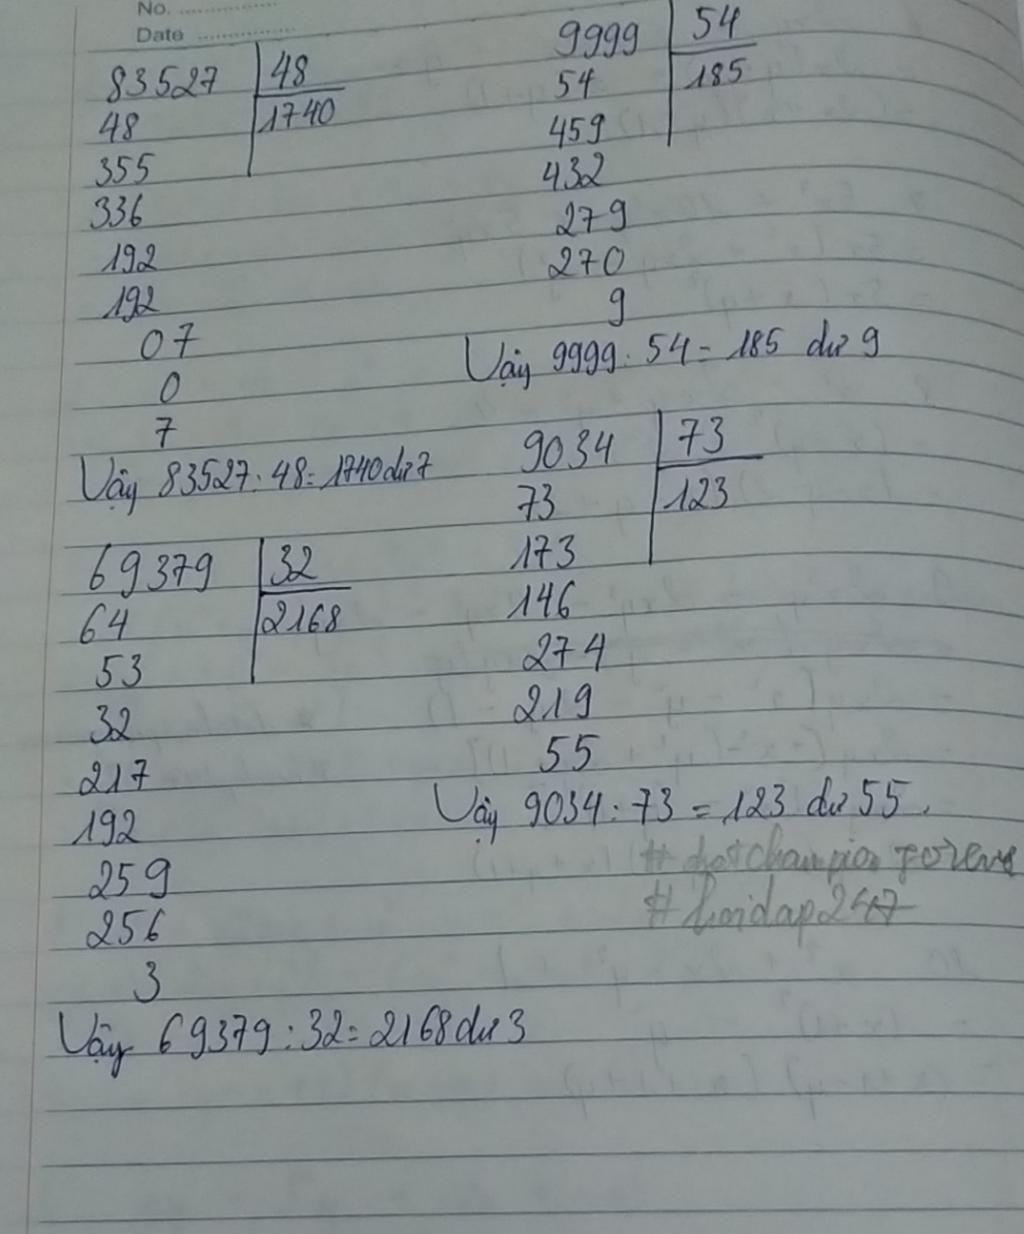 No. ..................
Date ..................
83527 48
48 1740
355
336
192
192
07
0
7
Vậy 83527 : 48 = 1740 dư 7
9999 54
54 185
459
432
279
270
9
Vậy 9999 : 54 = 185 dư 9
69379 32
64 2168
53
32
217
192
259
256
3
Vậy 69379 : 32 = 2168 dư 3
9034 73
73 123
173
146
274
219
55
Vậy 9034 : 73 = 123 dư 55.
#hoidap247